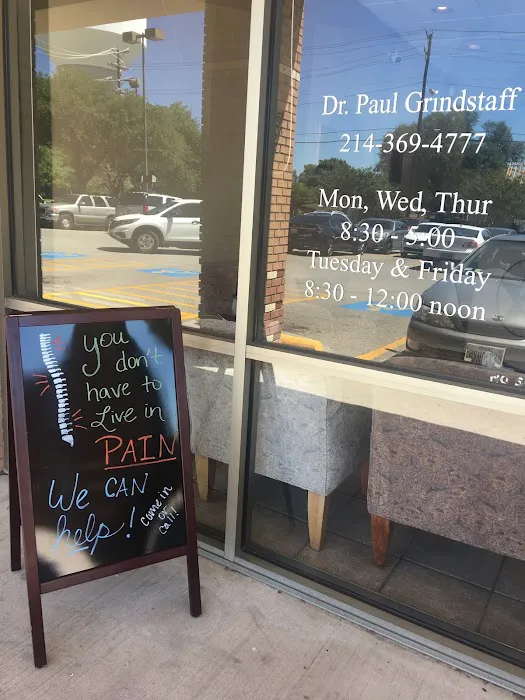 Dr. Paul Grindstaff
214-369-4777
Mon, Wed, Thur
8:30 - 5:00
Tuesday & Friday
8:30 - 12:00 noon
You
don't
have to
Live in
PAIN
We CAN
help!
come in
or
call!